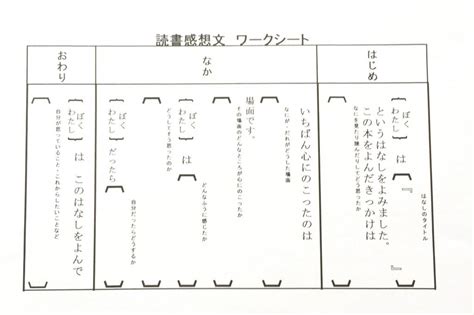 読書感想文 ワークシート
はじめ
なか
おわり
はなしのタイトル
ぼく
わたし
は『
』
というはなしをよみました。
この本をよんだきっかけは
なにを見たり聞んだりしてどう思ったか
いちばん心にのこったのは
なにが・だれがどうした場面
場面です。
その場面のどんなところが心にのこったか
ぼく
わたし
は
どんなふうに感じたか
どうしてそう思ったのか
ぼく
わたし
だったら
自分だったらどうするか
ぼく
わたし
は このはなしをよんで
自分が思っていること・これからしたいことなど